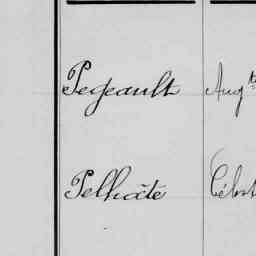 Pegeault Aug
Pelhâte Célest